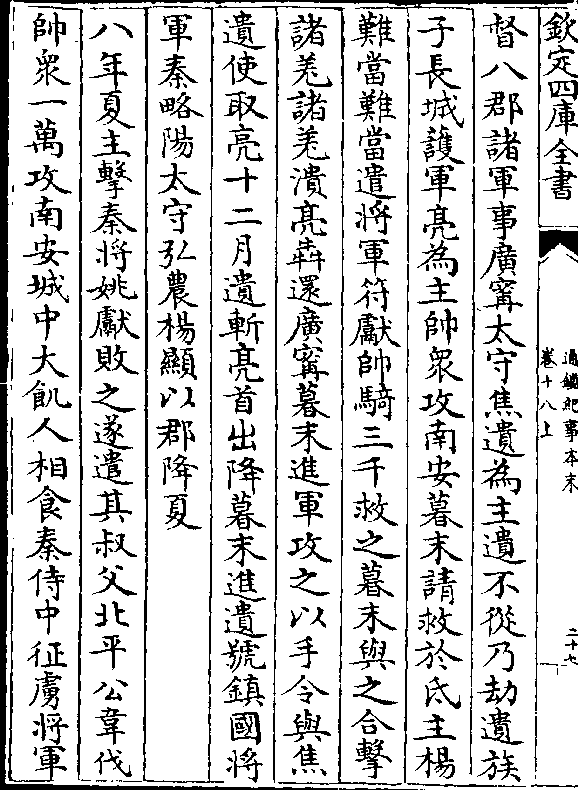 欽定四庫全書
通鑑紀事本末
卷十八上
二十七
督八郡諸軍事廣寗太守焦遺為主遺不從乃劫遺族
子長城護軍亮為主帥衆攻南安暮末請救於氐主楊
難當難當遣將軍符獻帥騎三千救之暮末與之合擊
諸羌諸羌潰亮犇還廣寗暮末進軍攻之以手令與焦
遺使取亮十二月遺斬亮首出降暮末進遺號鎮國將
軍秦略陽太守弘農楊顯以郡降夏
八年夏主擊秦將姚獻敗之遂遣其叔父北平公韋伐
帥衆一萬攻南安城中大飢人相食秦侍中征虜將軍